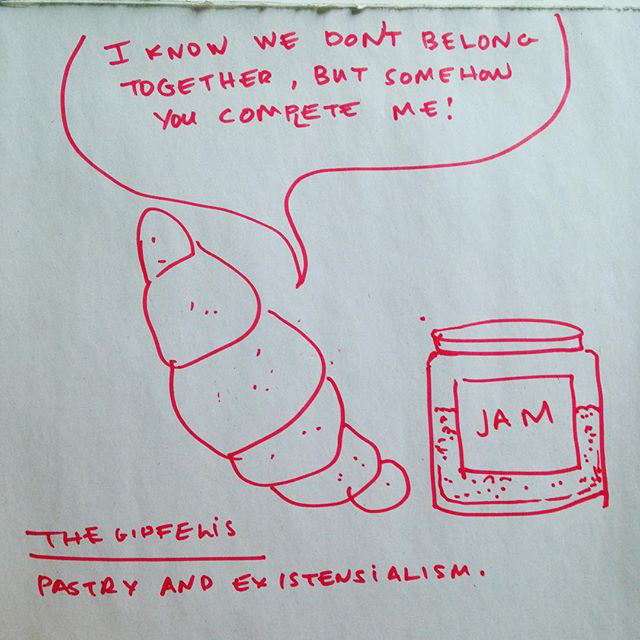 I KNOW WE DON'T BELONG
TOGETHER, BUT SOMEHOW
YOU COMPLETE ME!
JAM
THE GIPFELIS
PASTRY AND EXISTENSIALISM.